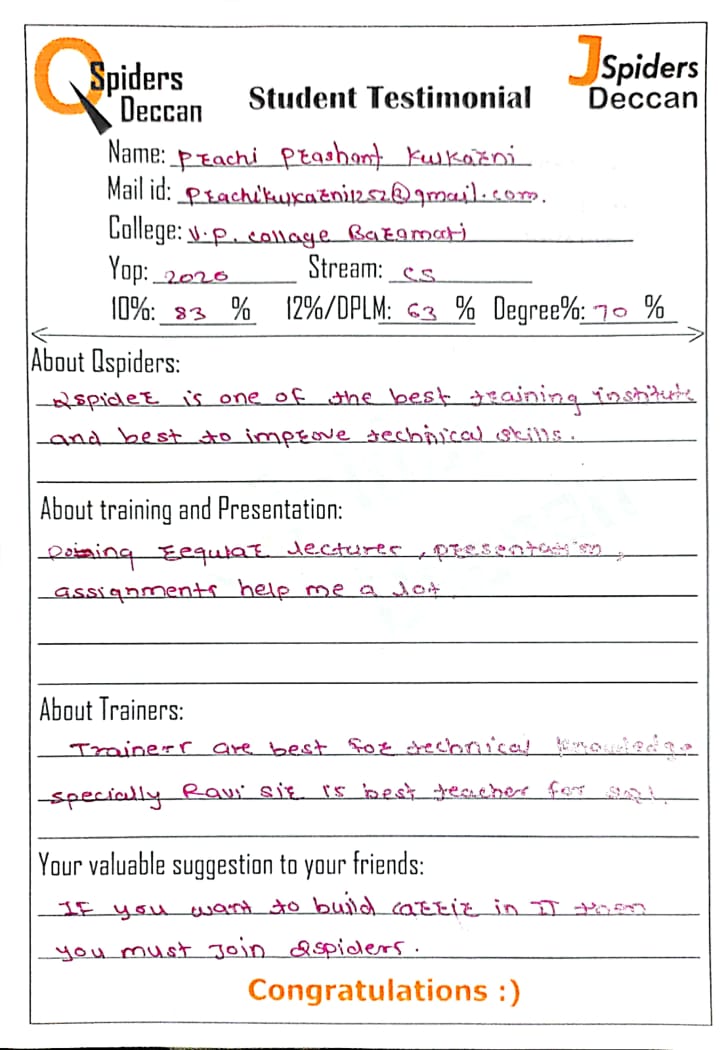 QSpiders
Deccan
JSpiders
Deccan
Student Testimonial
Name: Prachi Prashant Kulkarni
Mail id: Prachikulkarni1252@gmail.com.
College: V.P. collage Baramati
Yop: 2020 Stream: CS
10%: 83 % 12%/DPLM: 63 % Degree%: 70 %
About Qspiders:
Qspider is one of the best training institute
and best to improve technical skills.
About training and Presentation:
regular lectures, presentation,
assignments help me a lot
About Trainers:
Trainers are best for technical knowledge
specially Ravi sir is best teacher for sql.
Your valuable suggestion to your friends:
If you want to build in IT then
you must Join Qspiders.
Congratulations :)